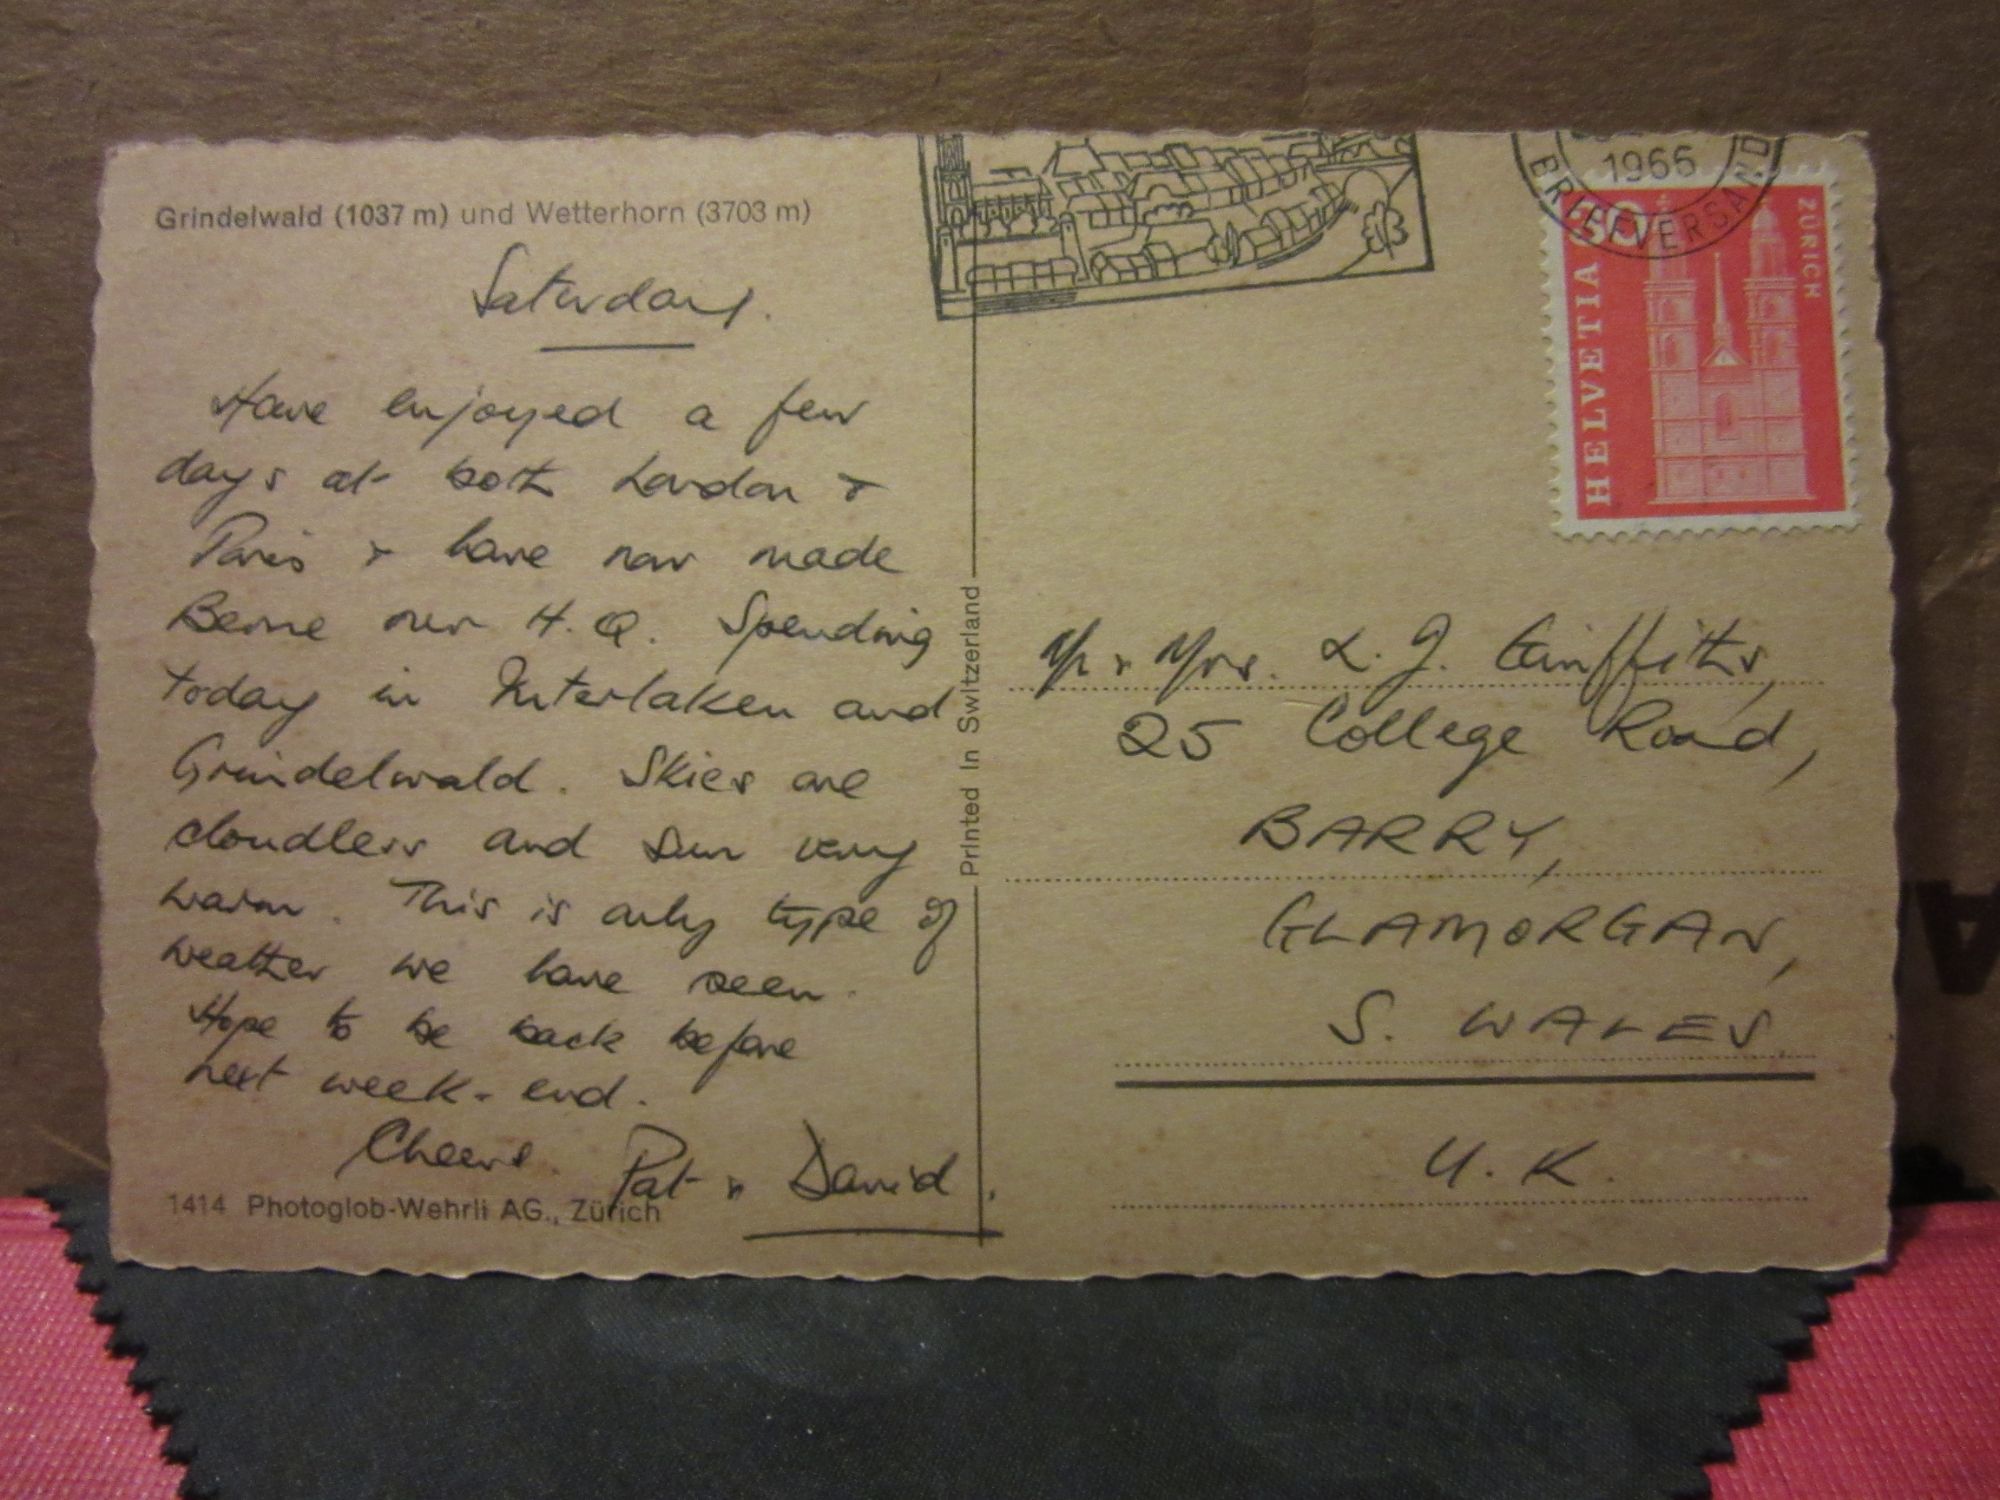 Grindelwald (1037 m) und Wetterhorn (3703 m)
Saturday.
Have enjoyed a few
days at both London &
Paris & have now made
Berne our H.Q. Spending
today in Interlaken and
Grindelwald. Skies are
cloudless and sun very
warm. This is only type of
weather we have seen.
Hope to be back before
next week-end.
Cheers. Pat & David.
1414 Photoglob-Wehrli AG., Zürich
Printed in Switzerland
1966
BRIEFVERSAND
HELVETIA
ZÜRICH
Mr & Mrs. L. J. Griffiths,
25 College Road,
BARRY,
GLAMORGAN,
S. WALES
U.K.